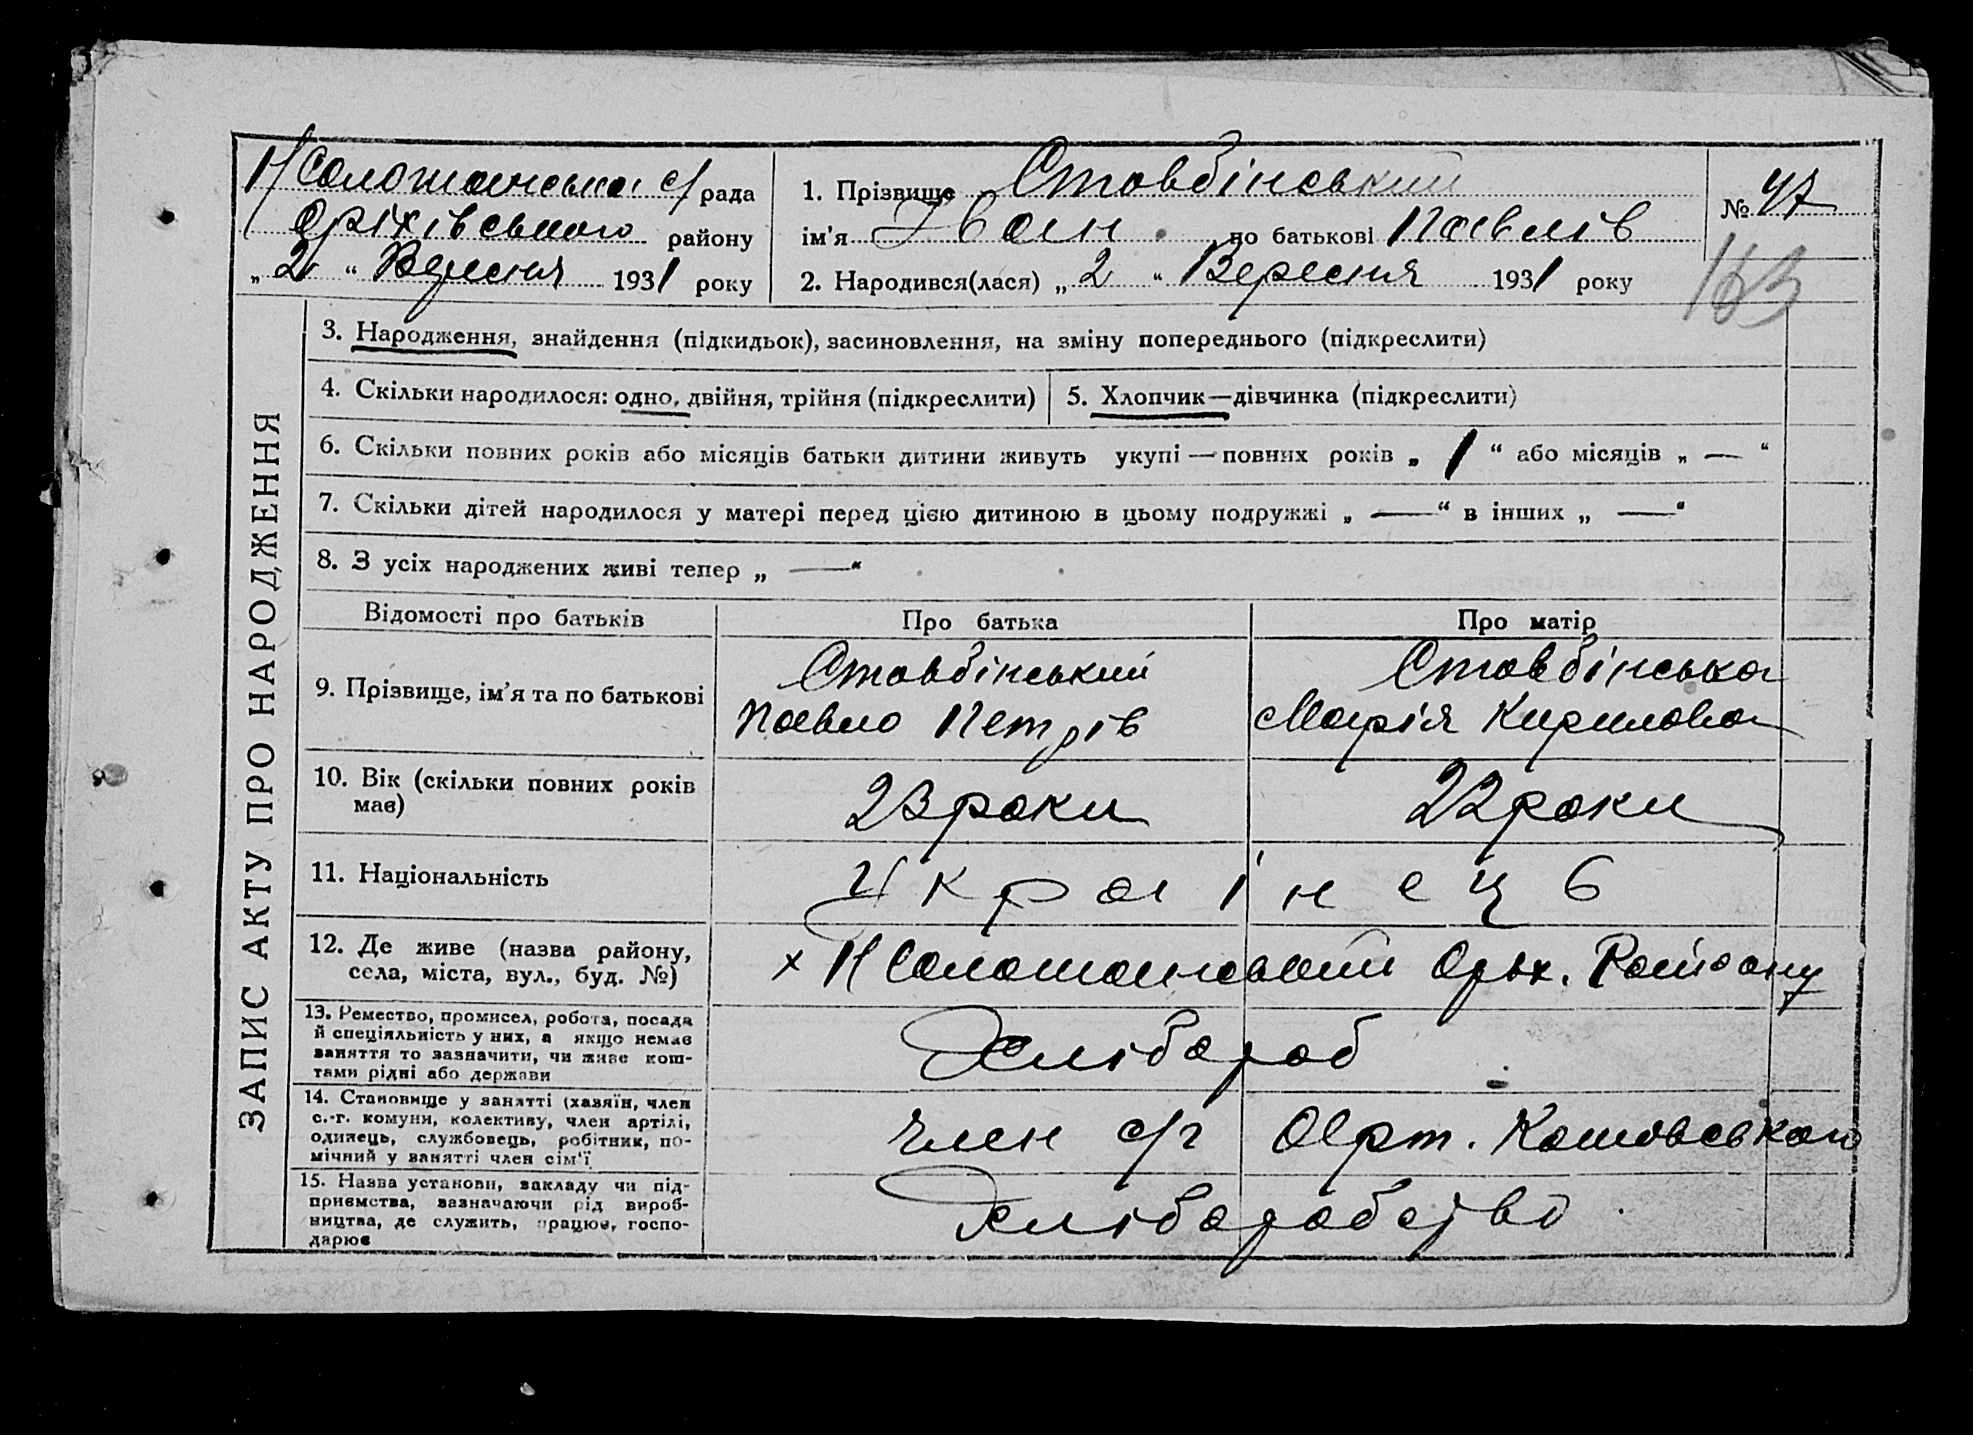 Н/Солошанська с/рада
Оріхівського району
„ 2 “ Вересня 1931 року
1. Прізвище Стовбінський
ім'я Іван по батькові Павлів
2. Народився(лася) „ 2 “ Вересня 1931 року
№ 47
163
ЗАПИС АКТУ ПРО НАРОДЖЕННЯ
3. Народження, знайдення (підкидьок), засиновлення, на зміну попереднього (підкреслити)
4. Скільки народилося: одно, двійня, трійня (підкреслити)
5. Хлопчик—дівчинка (підкреслити)
6. Скільки повних років або місяців батьки дитини живуть укупі — повних років „ 1 “ або місяців „ — “
7. Скільки дітей народилося у матері перед цією дитиною в цьому подружжі „ — “ в інших „ — “
8. З усіх народжених живі тепер „ — “
Відомості про батьків Про батька Про матір
9. Прізвище, ім'я та по батькові
Стовбінський
Павло Петрів
Стовбінська
Марія Кирилова
10. Вік (скільки повних років
має)
23 роки 22 роки
11. Національність Українець
12. Де живе (назва району,
села, міста, вул., буд. №)
х Н Солошанський Оріх. Району
13. Ремество, промисел, робота, посада
й спеціяльність у них, а якщо немає
заняття то зазначити, чи живе кош-
тами рідні або держави
Хлібороб
14. Становище у занятті (хазяїн, член
с.-г. комуни, колективу, член артілі,
одинець, службовець, робітник, по-
мічний у занятті член сім'ї
член с/г Арт.
15. Назва установи, закладу чи під-
приємства, зазначаючи рід вироб-
ництва, де служить, працює, госпо-
дарює
Хліборобство